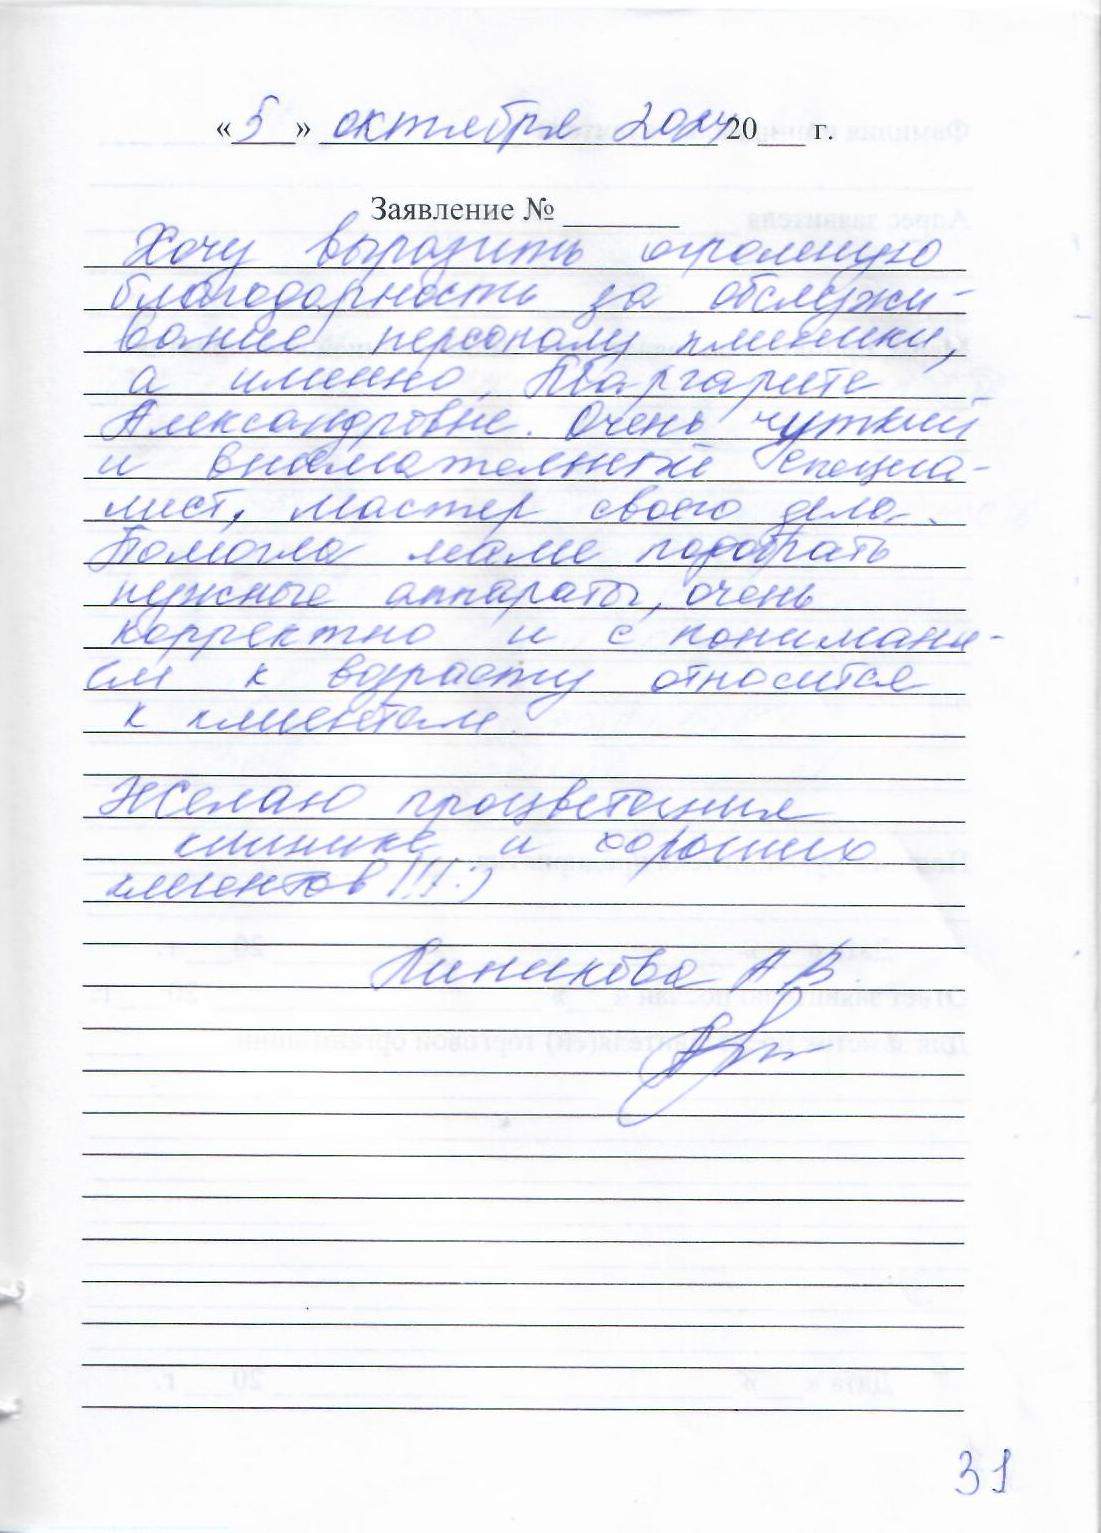 «5» октября 2024 20___ г.
Заявление № ______
Хочу выразить огромную
благодарность за обслужи-
вание персоналу клиники,
а именно Маргарите
Александровне. Очень чуткий
и внимательный специа-
лист, мастер своего дела.
Помогла маме подобрать
нужные аппараты, очень
корректно и с понимани-
ем к возрасту относится
к клиентам.
Желаю процветания
клинике и хороших
клиентов!!! :)
А.В.
31